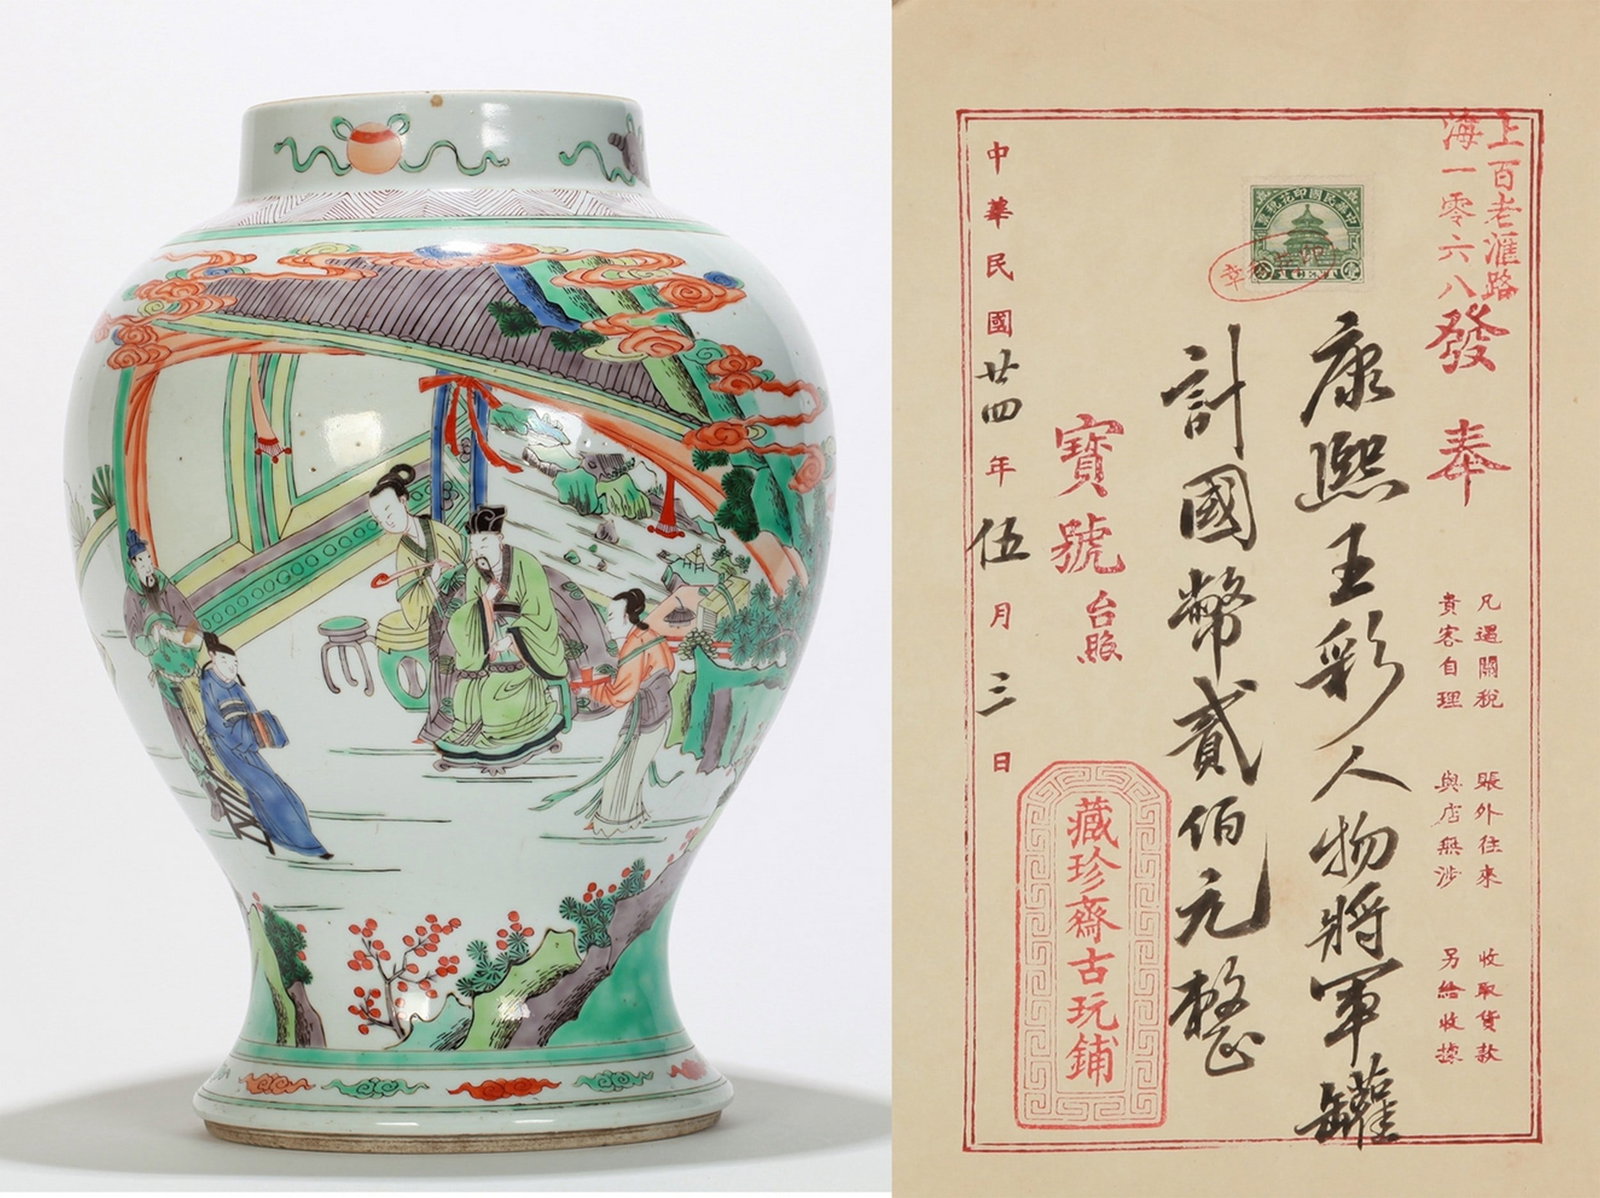 上海
百老滙路
一零六八
發奉
凡遇關稅 賬外往來 收取貨款
貴客自理 與店無涉 另給收據
康熙五彩人物將軍罐
計國幣貳佰元整
寶號台照
藏珍齋古玩鋪
中華民國廿四年伍月三日